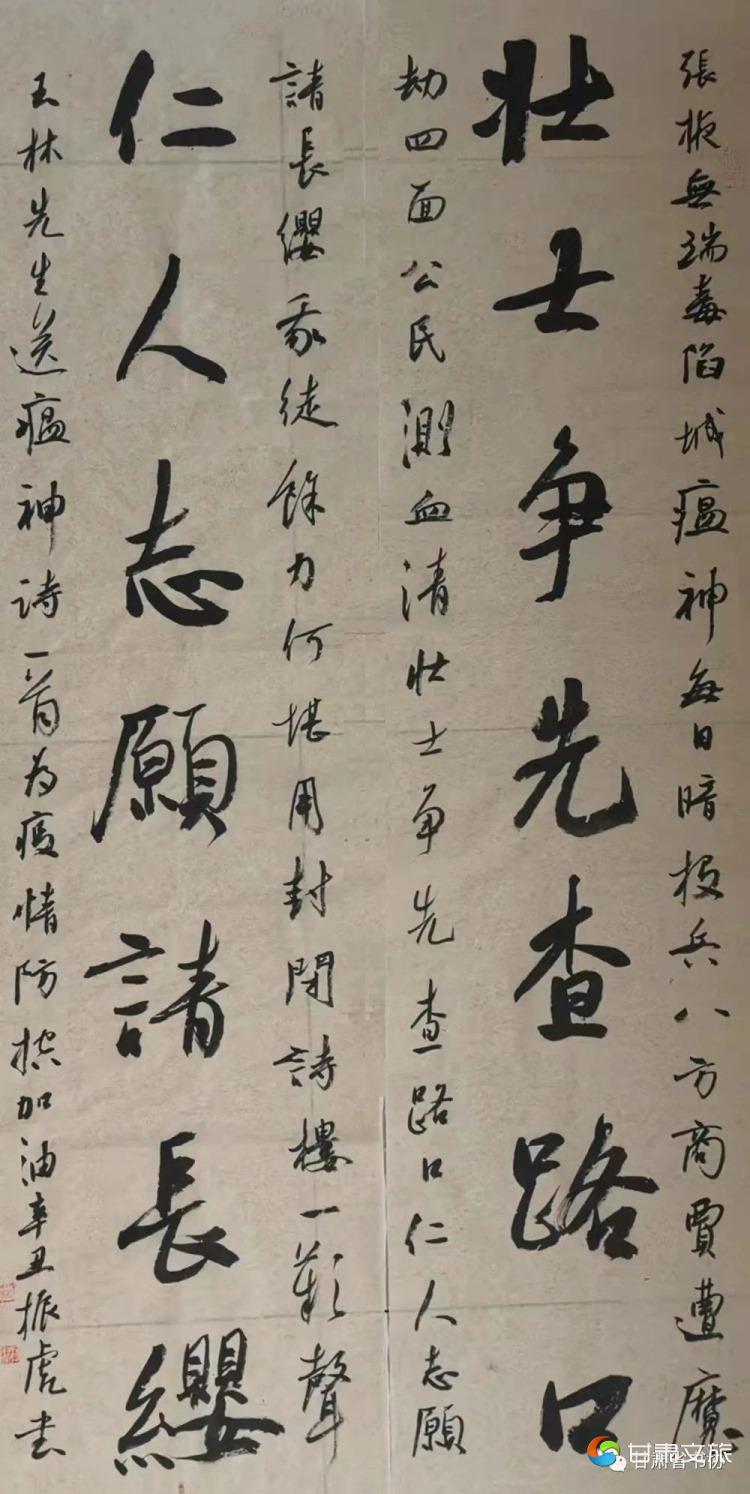 張掖無端毒陷城瘟神每日暗投兵八方商賈遭魔
壮士争先查路口
劫四面公民測血清壮士争先查路口仁人志願
請長纓我徒餘力何堪用封閉詩樓一歎聲
仁人志願請長纓
玉林先生送瘟神诗一首为疫情防控加油辛丑振虎书
甘肃文旅
甘肃省书协